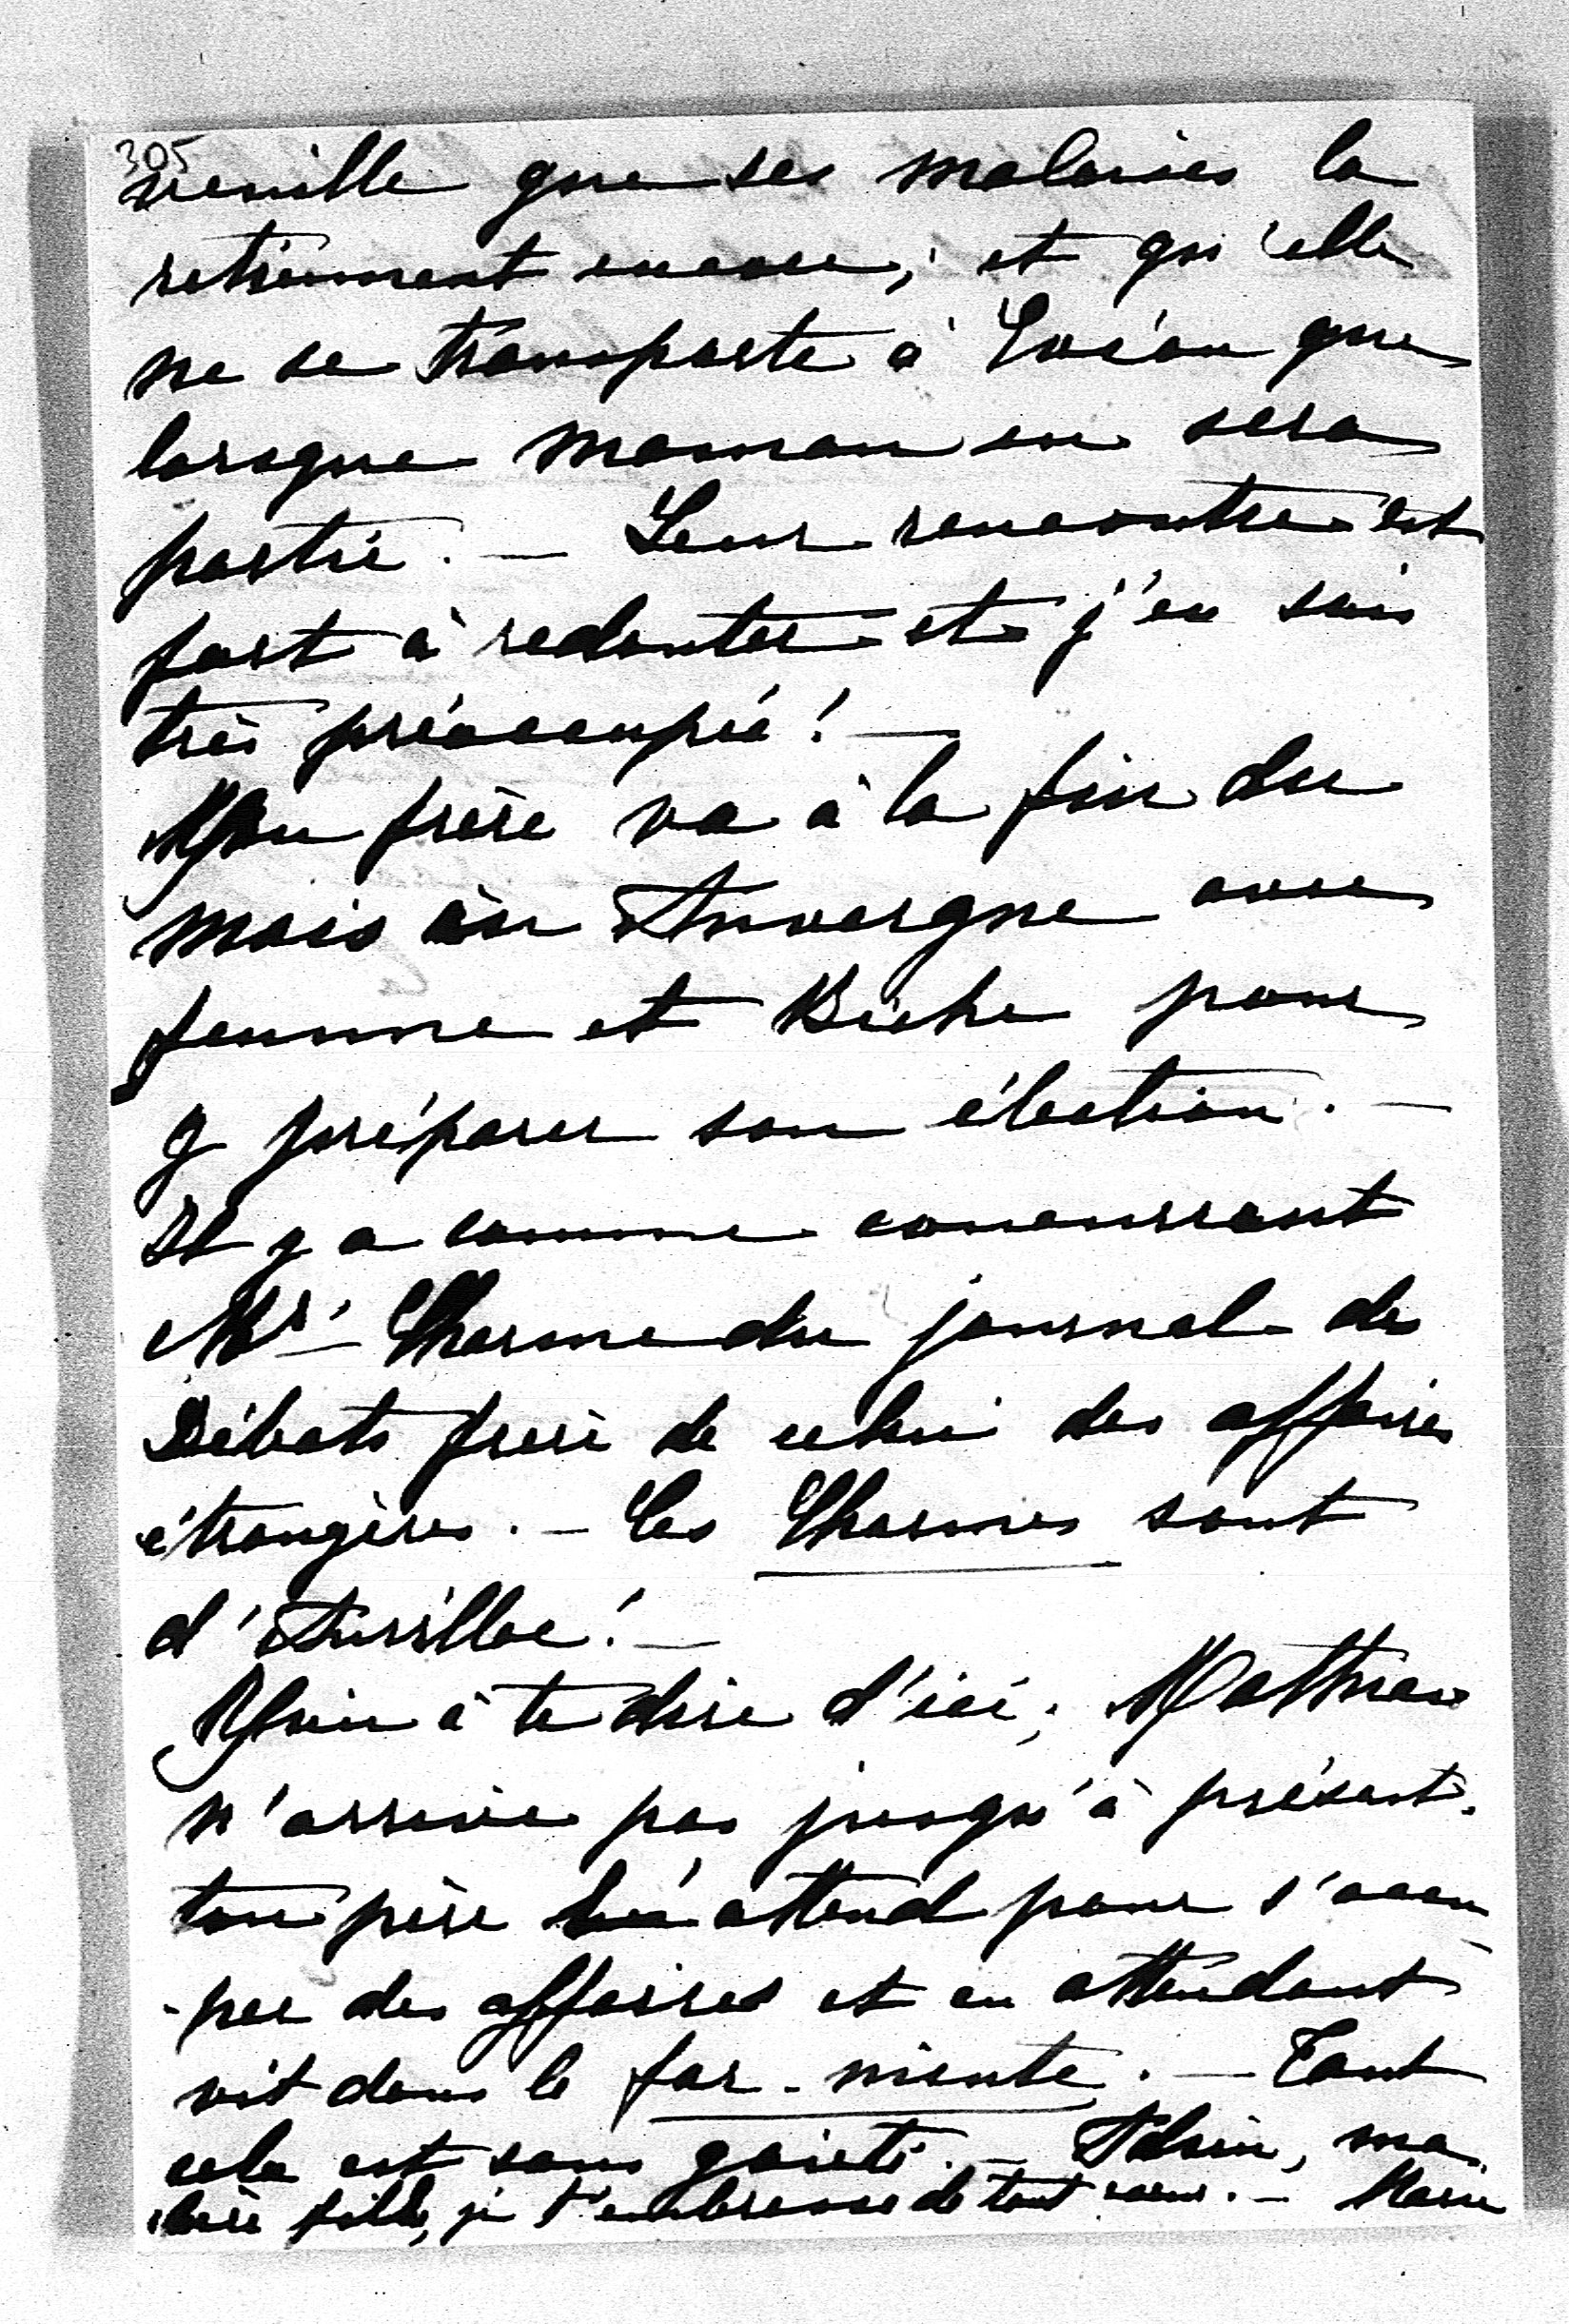 305
veuille que ses malaises la
retiennent encore; et qu'elle
ne se transporte à Evian que
lorsque maman en sera
partie. — Leur rencontre est
fort à redouter et j'en suis
très préoccupée! —
Mon frère va à la fin du
mois en Auvergne avec
femme et Biche pour
y préparer son élection. —
Il y a comme concurrent
Mr. Charme du journal des
Débats frère de celui des affaires
étrangères. — Les Charmes sont
d'Aurillac! —
Rien à te dire d'ici; Mathieu
n'arrive pas jusqu'à présent.
ton père l'attend pour s'occu-
-per des affaires et en attendant
vit dans le far-niente. — Tout
cela est sans gaieté. — Adieu, ma
chère fille, je t'embrasse de tout coeur. — Marie